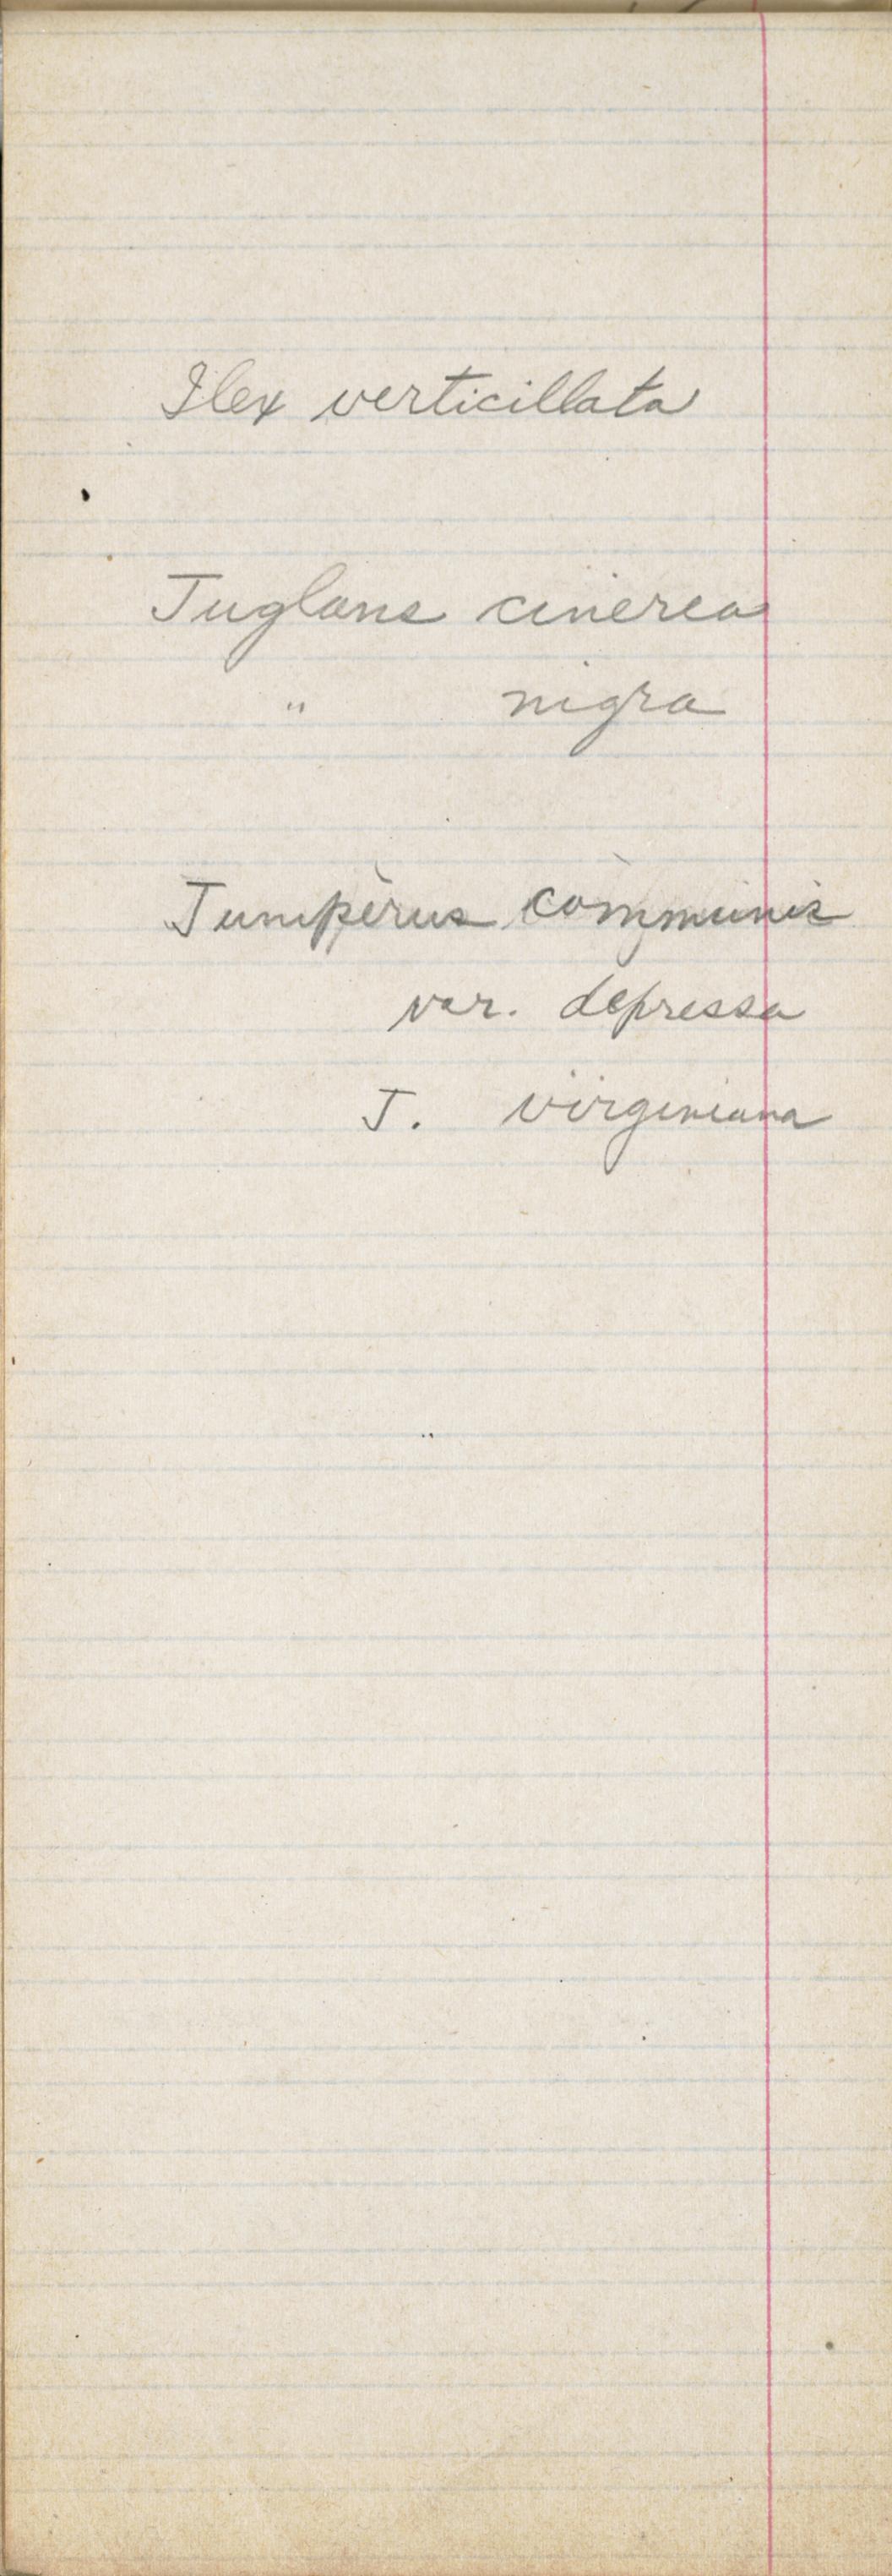 Ilex verticillata
Juglans cinerea
" nigra
Juniperus communis
var. depressa
J. virginiana